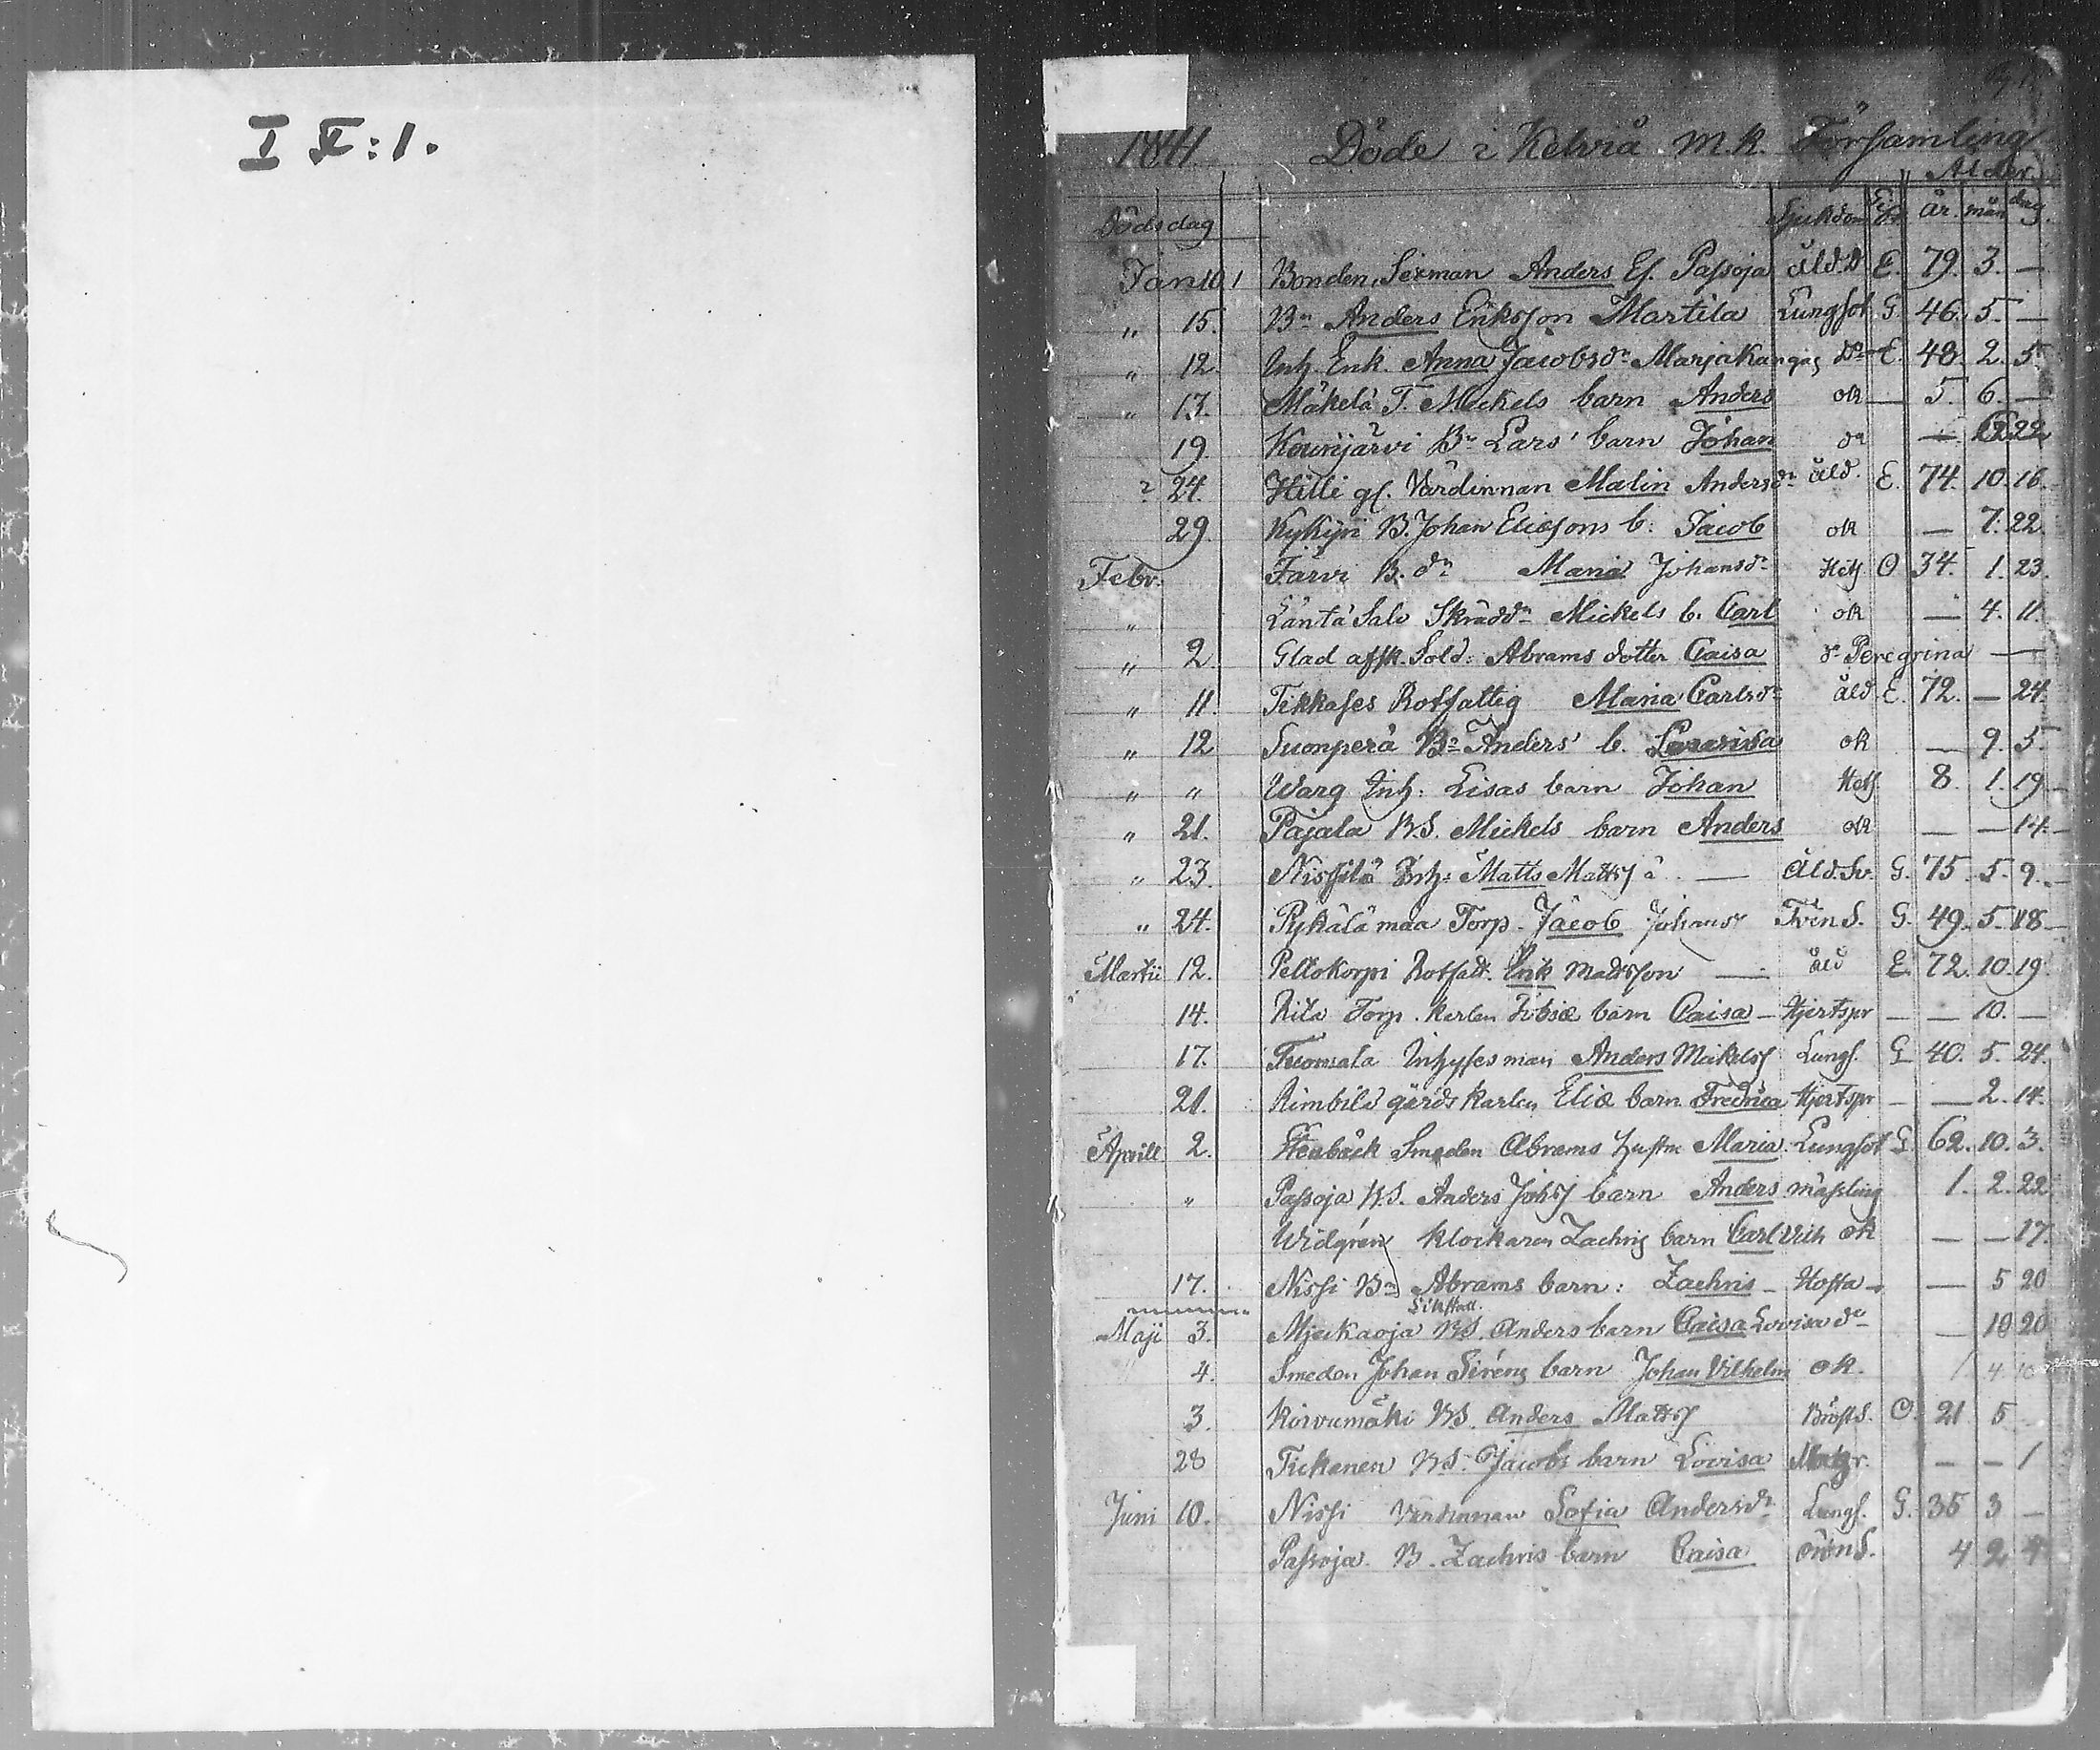 I F:1.
1841. Döde i Kelviå M.K. Församling
Ålder.
Dödsdag Sjukdom år. mån dag.
Jan 10 1 Bonden, Sexman Anders Es. Passoja åld.d E. 79. 3. —
" 15. Bn Anders Eriksson Martila Lungsot G 46. 5. —
" 12. Inh. Enk. Anna Jacobsdr Marjakangas do E. 48. 2. 5
" 13. Mäkelä T. Mickels barn Anders ok — 5. 6. —
19. Bn Lars' barn Johan do — 22
24. Hilli gl. Värdinnan Malin Andersdr åld. E. 74. 10. 16.
29. Kykyri B. Johan Eliæsons b. Jacob ok — 7. 22.
Febr. Järvi B. dr Maria Johansdr Hets O 34. 1. 23.
" Läntä Salo Skrädd Mickels b. Carl ok — 4. 11.
" 2 Glad afsk. Sold: Abrams dotter Caisa Peregrina —
" 11. Tikkases Rotfattig Maria Carlsdr åld. E. 72. — 24.
" 12 Suonperä Bn Anders' b. ok — 9. 5.
" " Warg Inh: Lisas barn Johan Hets 8. 1. 19.
" 21. Pajala B.S. Mickels barn Anders ok — — 14.
" 23. Nissilä Inh: Matts Mattss — Åld. Sv. G. 75. 5. 9.
" 24. Pykälämaa Torp. Jacob Johanss Tvin S. G. 49. 5. 18.
Martii 12. Pellokorpi Rotfatt. Erik Mattsson — åld E. 72. 10. 19.
14. Torp. Karlen barn Caisa — Hjertspr — — 10. —
17. Tuomala Inhysesman Anders Mickelss Lungs. G 40. 5. 24.
21. Rimbild gårds karlen Eliæ barn Fredrica Hjertspr — — 2. 14.
Aprill 2. Stenbäck Smeden Abrams hustru Maria Lungsot G. 62. 10. 3.
" Passoja B.S. Anders Johss barn Anders mässling 1. 2. 22
Widgrén klockaren Zachris barn Carl Vilh ok — — 17.
17. Nissi Bn Abrams barn: Zachris — Hosta — — 5 20
Maji 3. Mjeckaoja B.S. Anders barn Caisa Lovisa do — 10 20
4. Smeden Johan Siréns barn Johan Vilhelm ok. 1 4
3. Korvumäki B.S. Anders Mattss Bröst S. O. 21 5
28 Tickanen B.S. Jacobs barn Lovisa — — 1
Juni 10. Nissi Värdinnan Sofia Andersdr Lungs. G. 35 3 —
Passoja B. Zachris barn Caisa 4 2 4